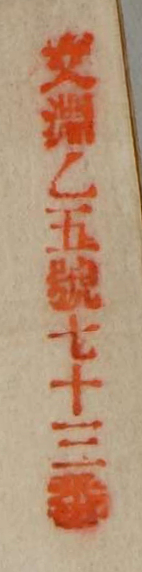 文淵乙五號七十三番